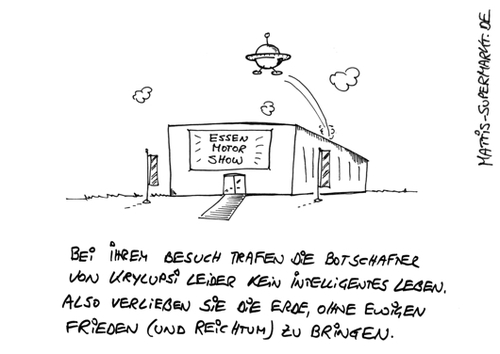 ESSEN
MOTOR
SHOW
BEI IHREM BESUCH TRAFEN DIE BOTSCHAFTER
VON KRYLUPSI LEIDER KEIN INTELLIGENTES LEBEN.
ALSO VERLIEßEN SIE DIE ERDE, OHNE EWIGEN
FRIEDEN (UND REICHTUM) ZU BRINGEN.
MATTIS-SUPERMARKT.DE